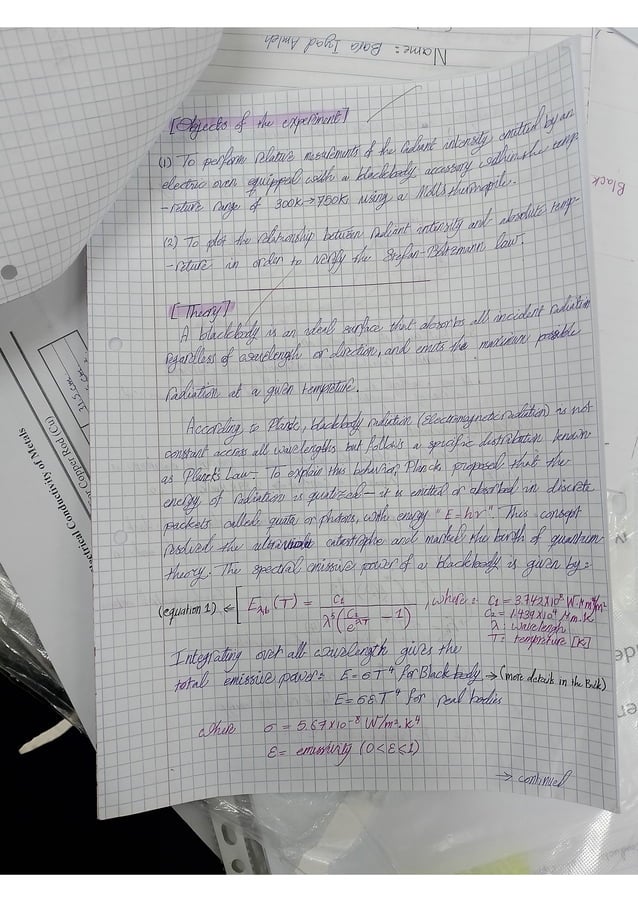 Name: Bara Iyad Amleh
Black
[Objects of the experiment]
(1) To perform relative measurements of the radiant intensity emitted by an
electric oven equipped with a blackbody accessory within the temp
-reture range of 300K→750K, using a Moll's thermopile.
(2) To plot the relationship between radiant intensity and absolute temp-
-reture in order to verify the Stefan-Boltzmann law.
[Theory]
A blackbody is an ideal surface that absorbs all incident radiation
regardless of wavelength or direction, and emits the maximum possible
radiation at a given tempreture.
According to Planck, blackbody radiation (electromagnetic radiation) is not
constant across all wavelengths but follows a specific distribution known
as Planck's Law- To explain this behavior, Planck proposed that the
energy of radiation is quatized - it is emitted or absorbed in discrete
packets called quata or photons, with energy "E=hν". This consept
resolved the ultraviolet catastrophe and marked the birth of quantum
theory. The spectral emissive power of a blackbody is given by:
(equation 1) ← [ Eλb (T) = C1 / λ^5 (e^(C2/λT) - 1) , where: C1 = 3.742x10^8 W.μm^4/m^2
C2 = 1.439x10^4 μm.K
λ: wavelength
T: tempreture [K]
Integrating over all wavelength gives the
total emissive power: E=σT^4 for Blackbody → (more details in the Bulk)
E=σεT^4 for real bodies
where σ = 5.67x10^-8 W/m^2.K^4
ε= emissivity (0<ε<1)
→ continued
Electrical Conductivity of Metals
Copper Rod (Cu)
31.5 cm